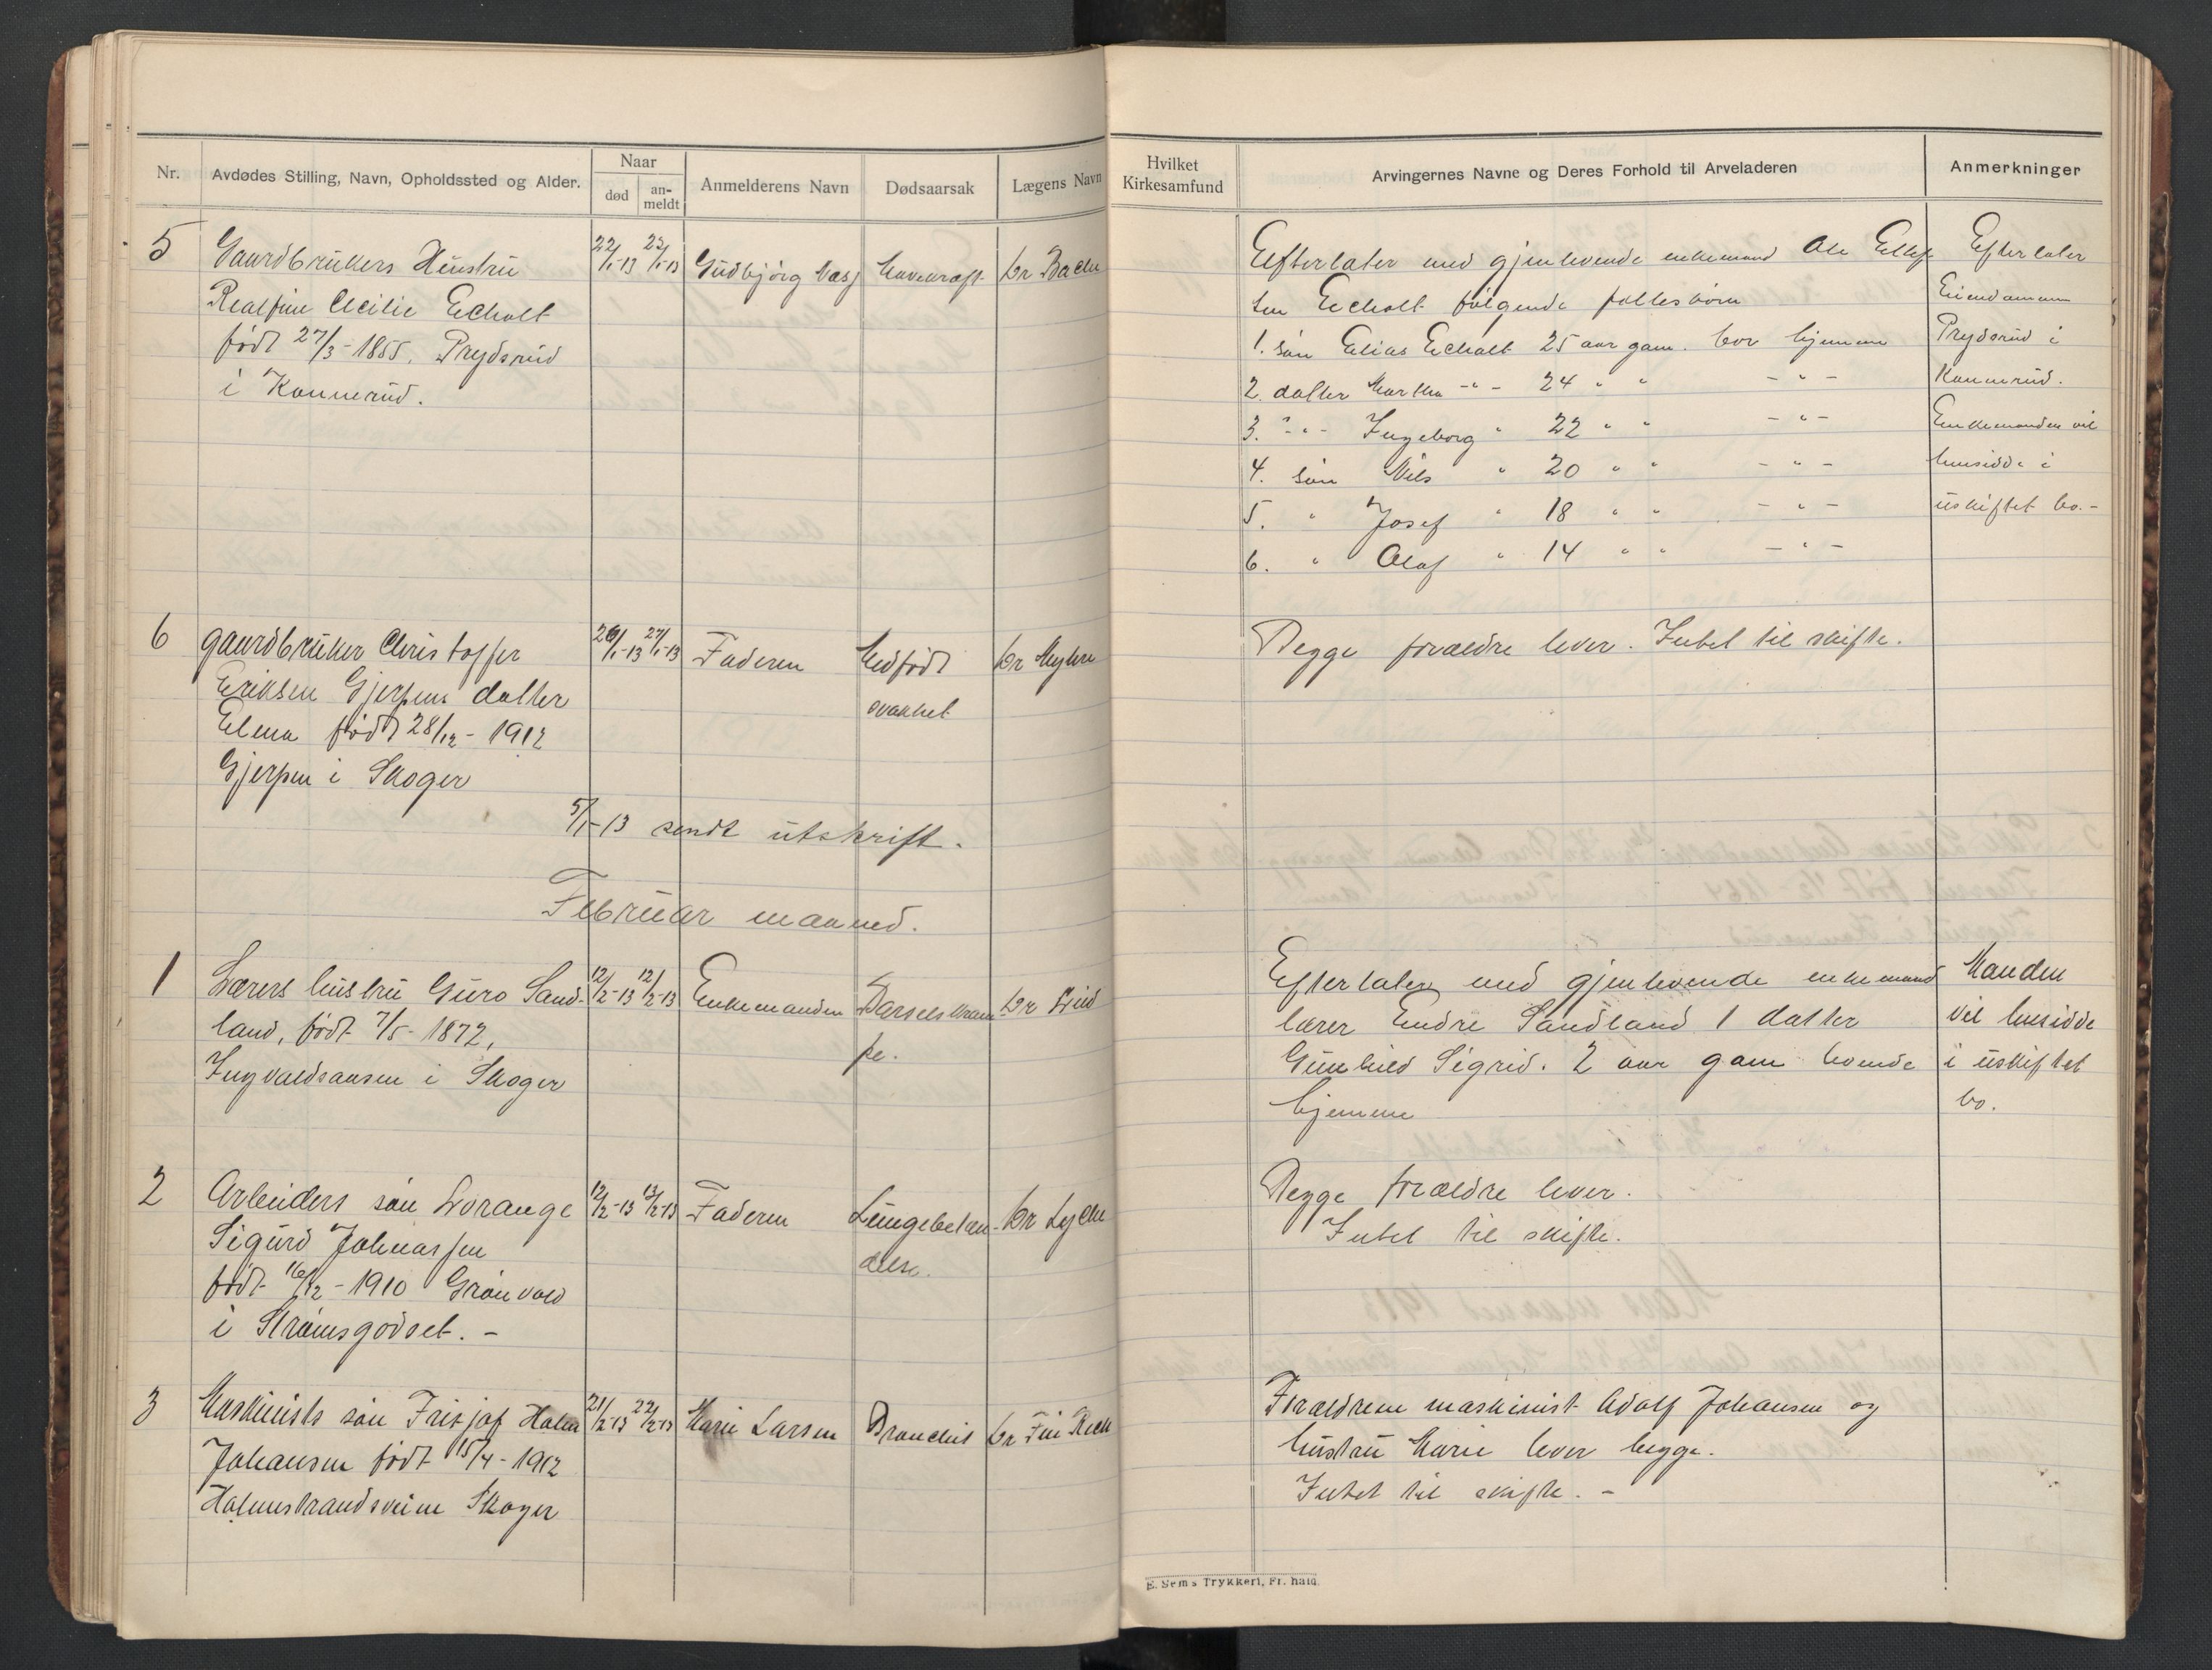 Nr.
Avdødes Stilling, Navn, Opholdssted og Alder.
Naar
død
an-
meldt
Anmelderens Navn
Dødsaarsak
Lægens Navn
5
Gaardbrukers Hustru
Realfine Cecilie Eckholt
født 27/3-1855. Prydsrud
i Konnerud.
22/1-13
23/1-13
Gudbjørg
Mavekræft
Dr Bache
6
gaardbruker Christoffer
Eriksen Gjerpens datter
Elma født 28/12-1912
Gjerpen i Skoger
26/1-13
27/1-13
Faderen
Medfødt
svakhet
Dr Myhre
5/1-13 sendt utskrift.
Februar maaned.
1
Lærers hustru Guro Sand-
land, født 7/5-1872,
Ingvaldsaasen i Skoger
12/2-13
12/2-13
Enkemanden
Barselskram-
pe.
Dr
2
Arbeiders søn Lorange
Sigurd Johnassen
født 16/12-1910 Grønvold
i Strømsgodset. -
12/2-13
13/2-13
Faderen
Lungebetæn-
delse.
Dr Lyche
3
Maskinists søn Fritjof Holm
Johansen født 15/4-1912
Holmestrandsveien Skoger
21/2-13
22/2-13
Marie Larsen
Bronchit
Dr
Hvilket
Kirkesamfund
Arvingernes Navne og Deres Forhold til Arveladeren
Anmerkninger
Efterlater med gjenlevende enkemand Ole Ellef
sen Eckholt følgende fællesbørn
1. søn Elias Eckholt 25 aar gam. bor hjemme
2. datter Martha -"- 24 " " -"-
3. -"- Ingeborg " 22 " " -"-
4. søn Nils " 20 " " -"-
5. " Josef " 18 " " -"-
6. " Olaf " 14 " " -"-
Efterlater
Eiendommen
Prydsrud i
Konnerud.
Enkemanden vil
hensidde i
uskiftet bo.-
Begge forældre lever. Intet til skifte.
Efterlater med gjenlevende enkemand
lærer Endre Sandland 1 datter
Gunhild Sigrid. 2 aar gam boende
hjemme
Manden
vil hensidde
i uskiftet
bo.
Begge forældre lever.
Intet til skifte.
Forældrene maskinist Adolf Johansen og
hustru Marie lever begge.
Intet til skifte. -
E. Sem's Trykkeri, Fr. hald.